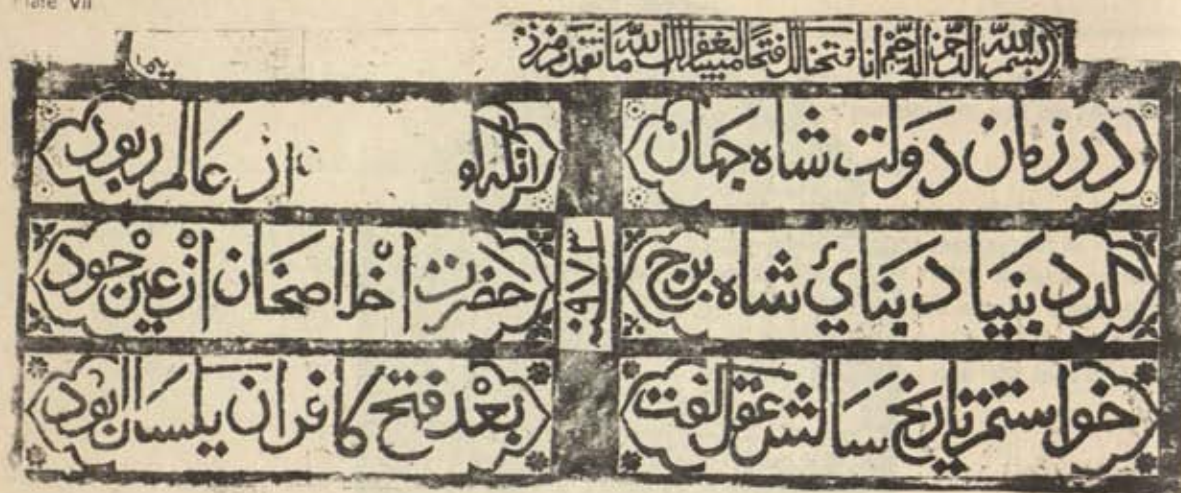 Plate VII
بسم الله الرحمن الرحيم انا فتحنا لك فتحا مبينا ليغفر لك الله ما تقدم من ذ
در زمان دولت شاه جهان
انکه او از عالم ربود
کرد بنیاد بنائ شاه برج
حضرت اخلاصخان از عین جود
۹۷۳
خواستم تاریخ سالش عقل گفت
بعد فتح کافران یکسال بود